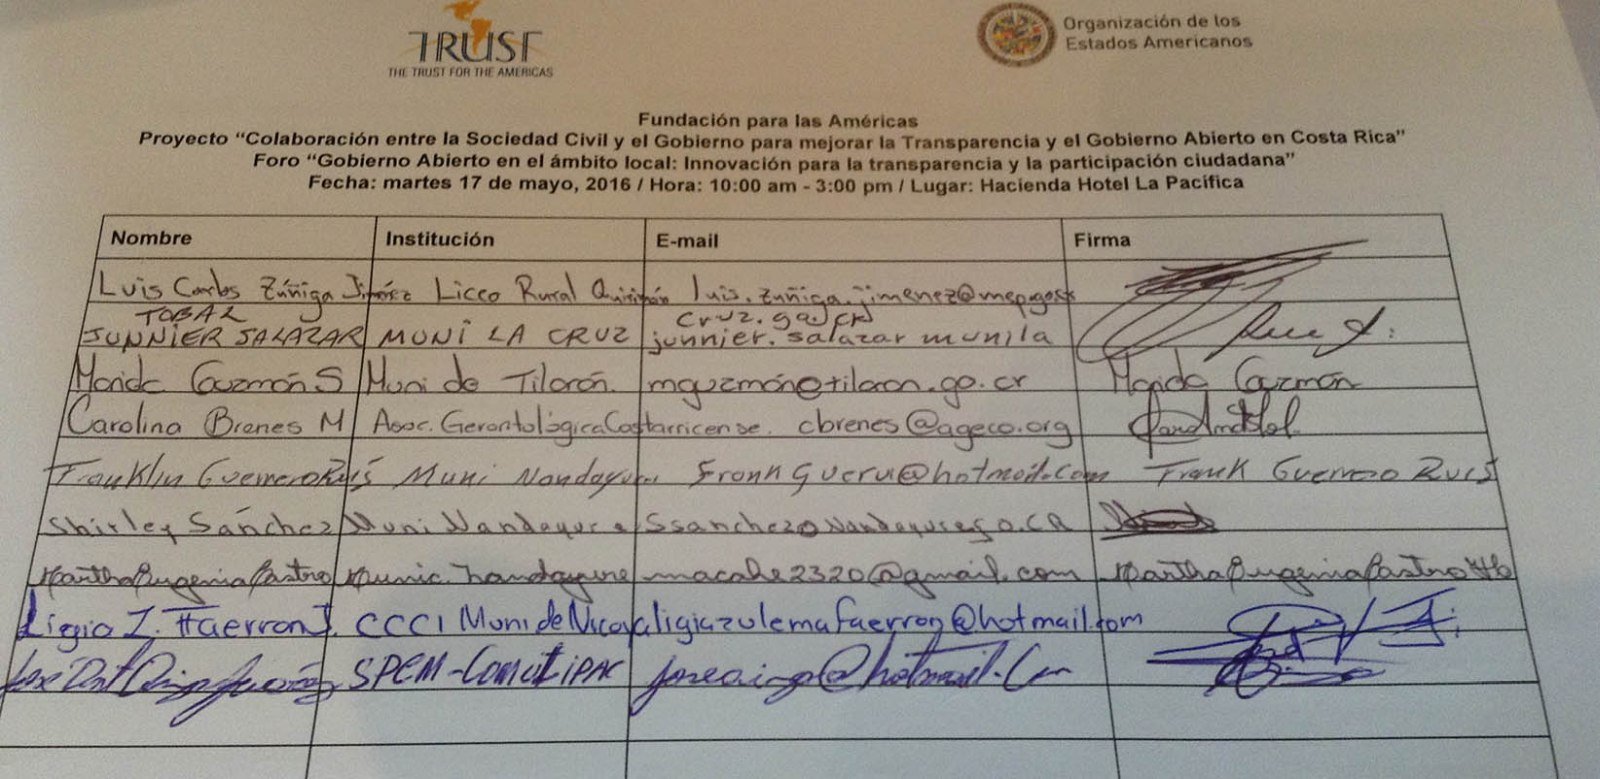 TRUST
THE TRUST FOR THE AMERICAS
Organización de los
Estados Americanos
Fundación para las Américas
Proyecto “Colaboración entre la Sociedad Civil y el Gobierno para mejorar la Transparencia y el Gobierno Abierto en Costa Rica”
Foro “Gobierno Abierto en el ámbito local: Innovación para la transparencia y la participación ciudadana”
Fecha: martes 17 de mayo, 2016 / Hora: 10:00 am - 3:00 pm / Lugar: Hacienda Hotel La Pacífica
Nombre Institución E-mail Firma
Luis Carlos Zúñiga Jiménez Liceo Rural luis.zuñiga.jimenez@mep.go.cr
TOBAL cruz.go.cr
JUNNIER SALAZAR MUNI LA CRUZ junnier.salazar munila
Guzmón S Muni de Tilarán. mguzmón@tilaran.go.cr Guzmón
Carolina Brenes M Asoc. Gerontológica Costarricense. cbrenes@ageco.org
Franklin Guerrero Ruís Muni Nandayure @hotmail.com Frank Guerrero Ruis
Shirley Sánchez Muni Nandayure
Martha Eugenia Castro Munic. Nandayure macahe2320@gmail.com Martha Eugenia Castro
Ligia Z. Faerron J. CCCI Muni de Nicoya ligiazulemafaerron@hotmail.com
SPCM- @hotmail.com